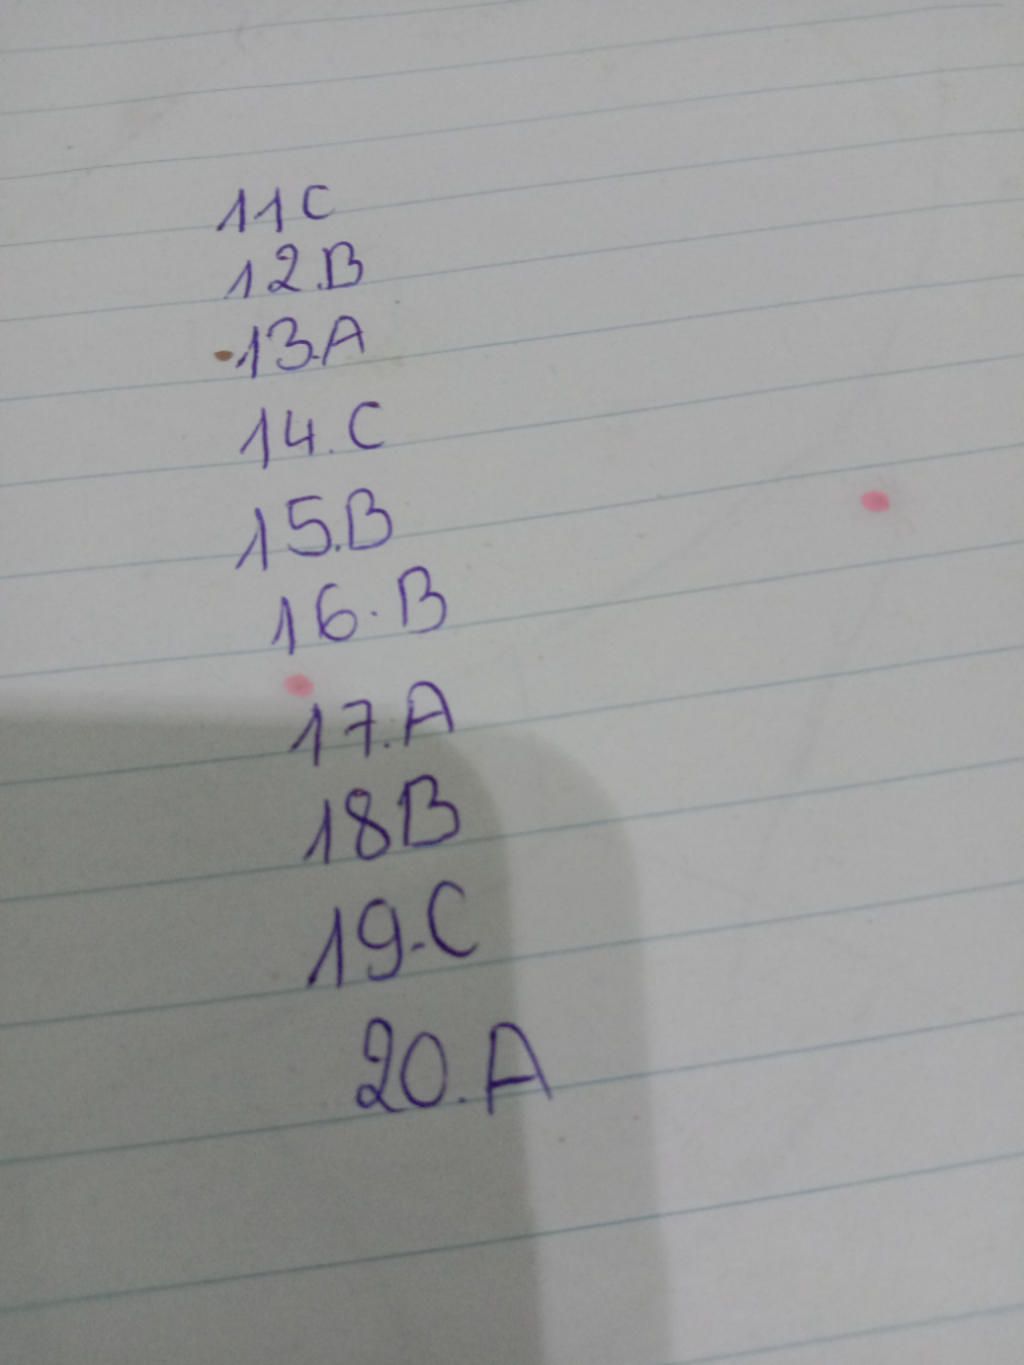 11C
12.B
13.A
14.C
15.B
16.B
17.A
18B
19.C
20.A